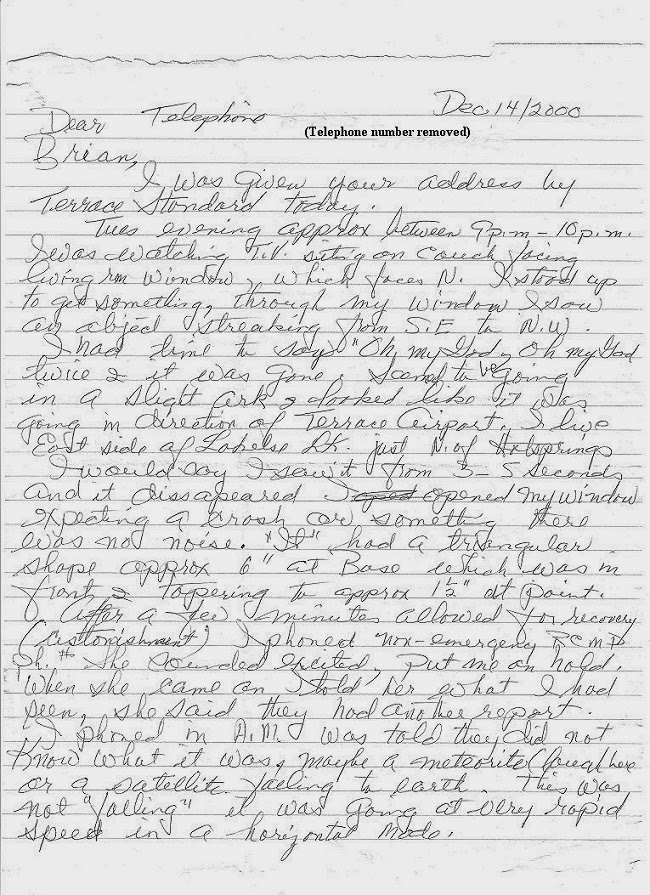 Dec 14/2000
Dear Telephone
(Telephone number removed)
Brian,
I was given your address by
Terrace Standard today.
Tues evening approx between 9p.m - 10p.m.
I was watching T.V. sitig on couch facing
living rm window, which faces N. I stood up
to get something, through my window I saw
an object streaking from S.E to N.W.
I had time to say "Oh, my God, Oh my God
twice & it was gone. Seemed to be going
in a slight ark & looked like it was
going in direction of Terrace Airport. I live
East side of Lakelse Lk. just N. of Hotsprings
I would say I saw it from 3-5 seconds
and it dissapeared I opened my window
expecting a crash or something there
was not noise. "It" had a triangular
shape approx 6" at Base which was in
front & tapering to approx 1½" at point.
After a few minutes allowed for recovery
(astonishment) I phoned non-emergency RCMP
ph. # She sounded excited, put me on hold.
When she came on I told her what I had
seen, she said they had another report.
I phoned in A.M. was told they did not
know what it was, maybe a meteorite (laugh here
or a satellite falling to earth. This was
not "falling" it was going at very rapid
speed in a horizontal mode.